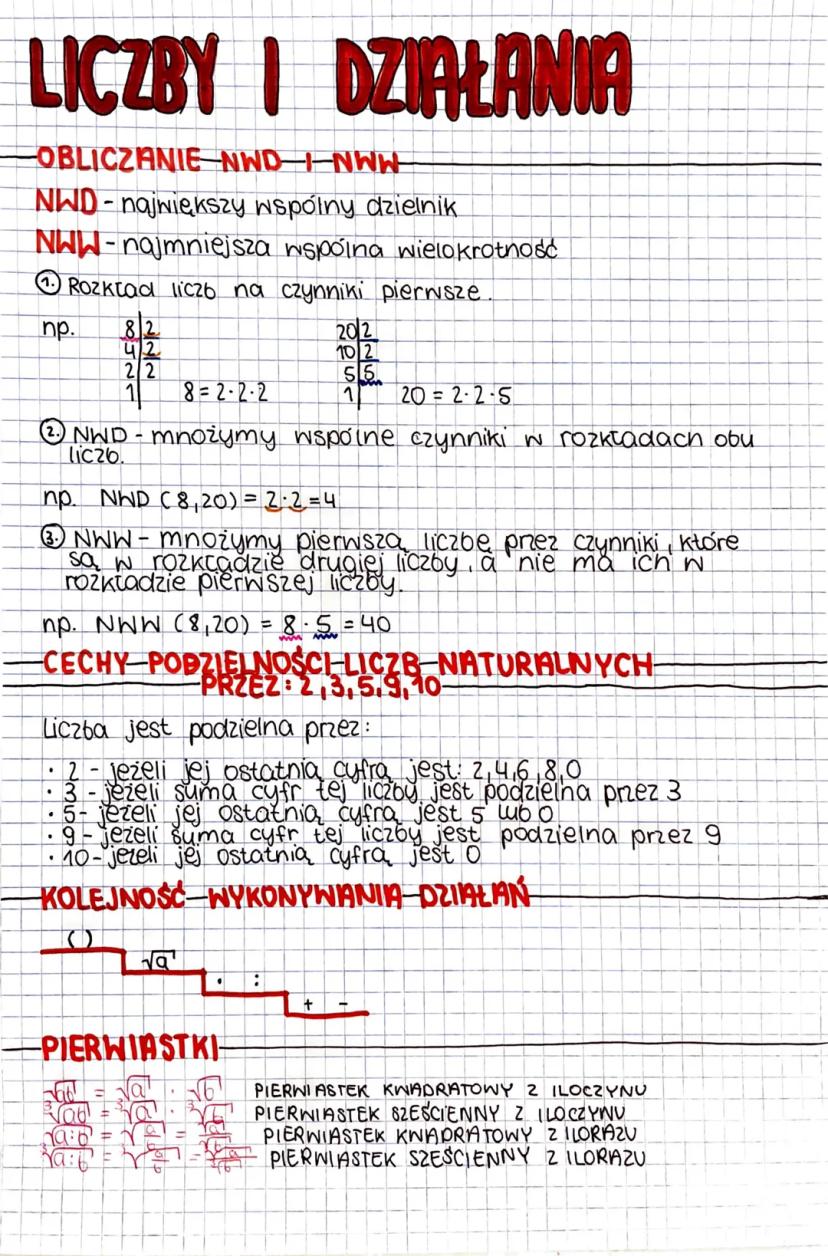 LICZBY I DZIAŁANIA
OBLICZANIE NWD I NWW
NWD - największy wspólny dzielnik
NWW - najmniejsza wspólna wielokrotność
1. Rozkład liczb na czynniki pierwsze.
np. 8|2 20|2
4|2 10|2
2|2 5|5
1| 8 = 2·2·2 1| 20 = 2·2·5
2. NWD - mnożymy wspólne czynniki w rozkładach obu
liczb.
np. NWD (8,20) = 2·2 = 4
3. NWW - mnożymy pierwszą liczbę przez czynniki, które
są w rozkładzie drugiej liczby, a nie ma ich w
rozkładzie pierwszej liczby.
np. NWW (8,20) = 8·5 = 40
CECHY PODZIELNOŚCI LICZB NATURALNYCH
PRZEZ: 2,3,5,9,10
Liczba jest podzielna przez:
· 2 - jeżeli jej ostatnią cyfrą jest: 2,4,6,8,0
· 3 - jeżeli suma cyfr tej liczby jest podzielna przez 3
· 5 - jeżeli jej ostatnią cyfrą jest 5 lub 0
· 9 - jeżeli suma cyfr tej liczby jest podzielna przez 9
· 10 - jeżeli jej ostatnią cyfrą jest 0
KOLEJNOŚĆ WYKONYWANIA DZIAŁAŃ
( )
√a
· :
+ -
PIERWIASTKI
√ab = √a · √b PIERWIASTEK KWADRATOWY Z ILOCZYNU
∛ab = ∛a · ∛b PIERWIASTEK SZEŚCIENNY Z ILOCZYNU
√a:b = √a/b = √a/√b PIERWIASTEK KWADRATOWY Z ILORAZU
∛a:b = ∛a/b = ∛a/∛b PIERWIASTEK SZEŚCIENNY Z ILORAZU